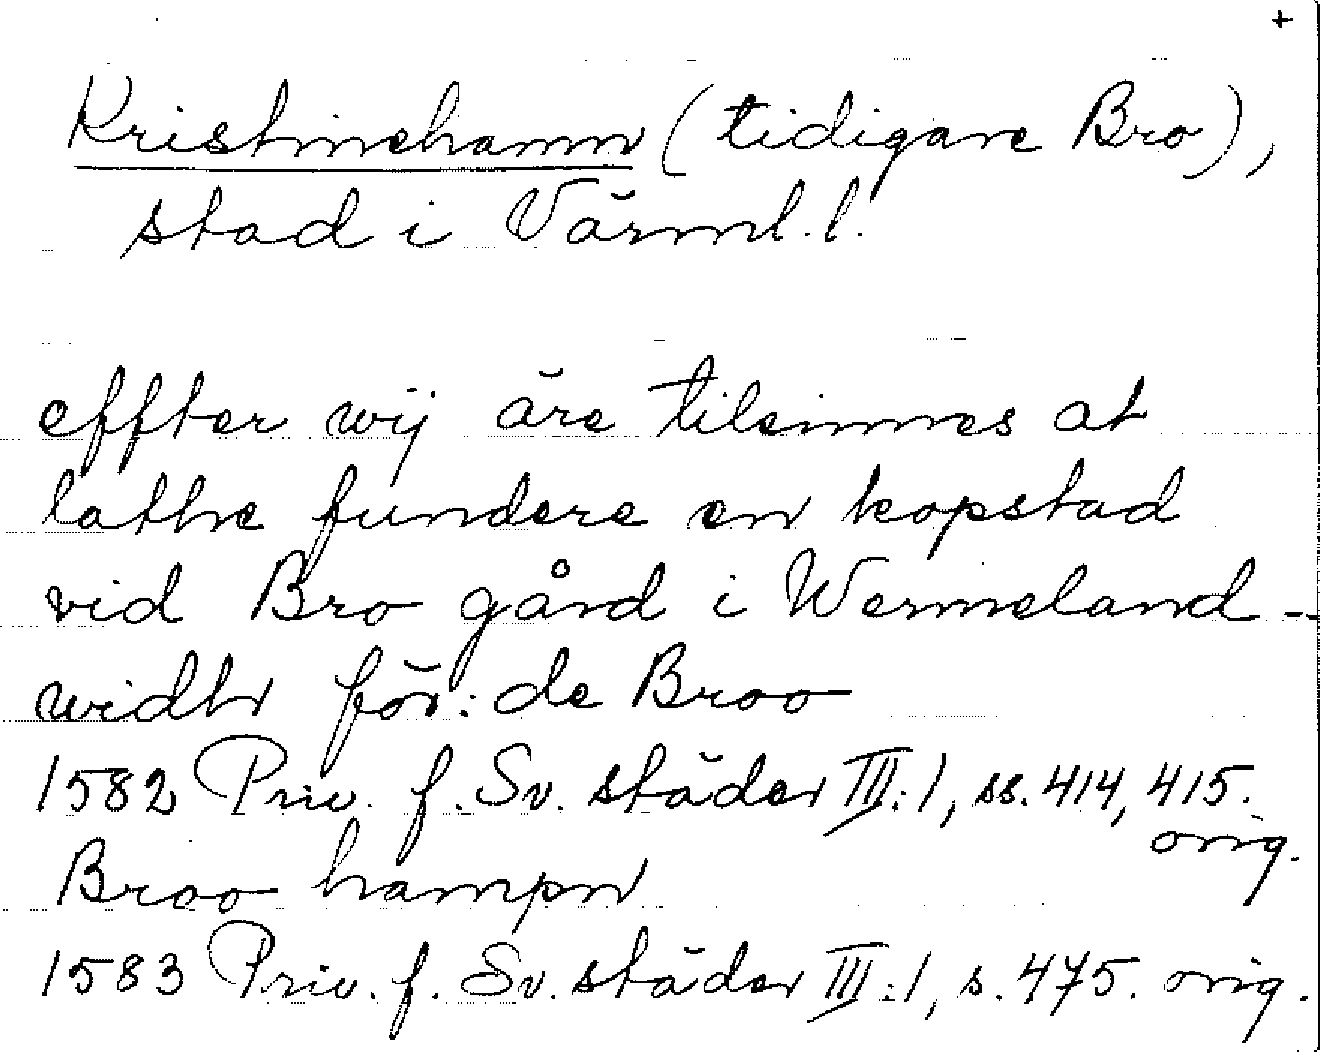 +
Kristinehamn (tidigare Bro),
stad i Värml. l.
effter wij äre tilsinnes at
lathe fundere en kopstad
vid Bro gård i Wermeland --
widhr för:de Broo
1582 Priv. f. Sv. städer III:1, ss. 414, 415.
orig.
Broo hampn
1583 Priv. f. Sv. städer III:1, s. 475. orig.